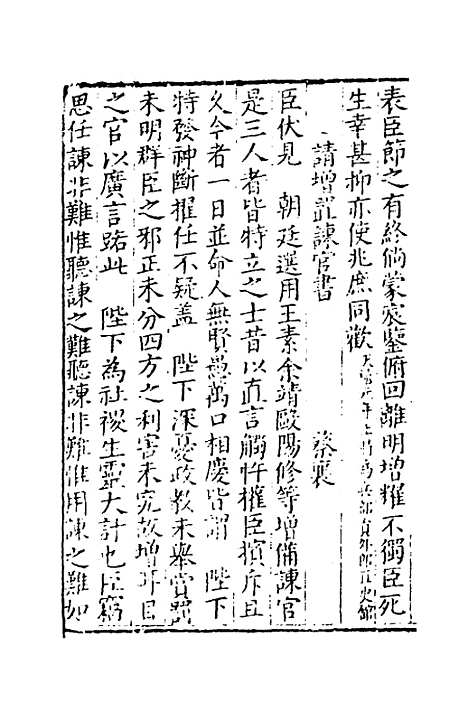 表臣節之有終倘蒙宸鑒俯回離明增耀不獨臣死
生幸甚抑亦使兆庶同歡
請增置諫官書　蔡襄
臣伏見　朝廷選用王素余靖歐陽修等增備諫官
是三人者皆特立之士昔以直言觸忤權臣擯斥且
久今者一日並命人無賢愚萬口相慶皆謂　陛下
特發神斷擢任不疑蓋　陛下深憂政教未舉賞罰
未明群臣之邪正未分四方之利害未究故增耳目
之官以廣言路此　陛下為社稷生靈大計也臣竊
思任諫非難惟聽諫之難聽諫非難惟用諫之難如